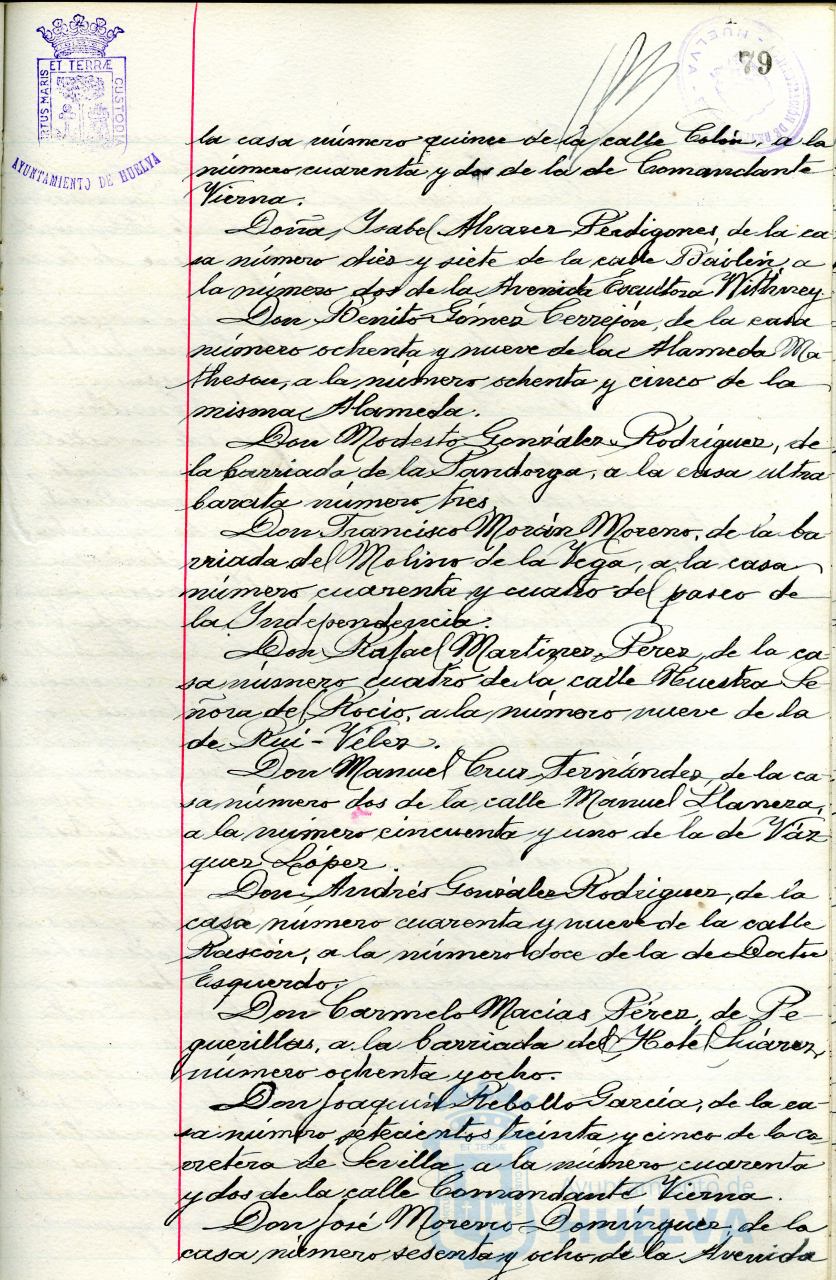 79
ET TERRÆ
CUSTODIA
AYUNTAMIENTO DE HUELVA
HUELVA
la casa número quince de la calle Colón, a la
número cuarenta y dos de la de Comandante
Vierna.
Doña Isabel Alvarez Perdigones, de la ca-
sa número diez y siete de la calle Bailén, a
la número dos de la Avenida Escultora Withney
Don Benito Gómez Cerrejón, de la casa
número ochenta y nueve de la Alameda Ma-
theson, a la número ochenta y cinco de la
misma Alameda.
Don Modesto González Rodríguez, de
la barriada de la Pandorga, a la casa ultra-
barata número tres.
Don Francisco Morán Moreno, de la ba-
rriada del Molino de la Vega, a la casa
número cuarenta y cuatro del paseo de
la Independencia.
Don Rafael Martínez Pérez, de la ca-
sa número cuatro de la calle Nuestra Se-
ñora del Rocío, a la número nueve de la
de Rui-Vélez.
Don Manuel Cruz Fernández, de la ca-
sa número dos de la calle Manuel Llaneza,
a la número cincuenta y uno de la de Váz-
quez López.
Don Andrés González Rodríguez, de la
casa número cuarenta y nueve de la calle
Rascón, a la número doce de la de Doctor
Esquerdo.
Don Carmelo Macías Pérez, de Pe-
guerillas, a la barriada del Hotel Suárez,
número ochenta y ocho.
Don Joaquín Rebollo García, de la ca-
sa número setecientos treinta y cinco de la ca-
rretera de Sevilla, a la número cuarenta
y dos de la calle Comandante Vierna.
Don José Moreno Domínguez, de la
casa número sesenta y ocho de la Avenida
Ayuntamiento de
HUELVA